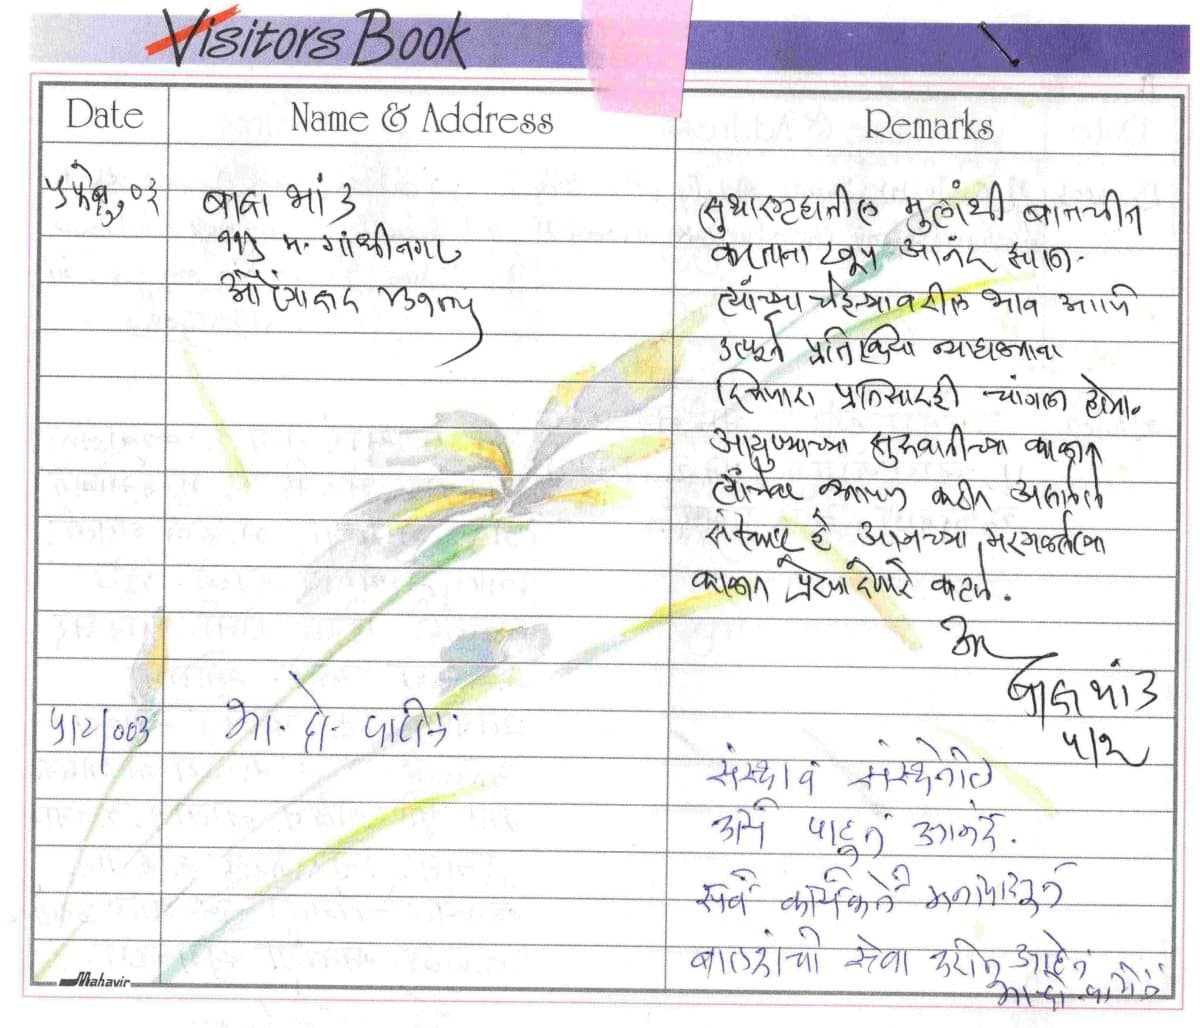 Visitors Book
Date Name & Address Remarks
५ फेब्रु, ०३ बाबा भांड
११५ म. गांधीनगर
औरंगाबाद
सुधारगृहातील मुलांशी बातचीत
करताना खूप आनंद झाला.
त्यांच्या चेहऱ्यावरील भाव आणि
उत्स्फूर्त प्रतिक्रिया
प्रतिसादही चांगला होता.
आयुष्याच्या सुरुवातीच्या काळात
त्यांच्यावर आपण करीत असलेले
संस्कार हे आमच्या
काळात प्रेरणा देणारे वाटले.
बाबा भांड
५/२
५/२/००३ भा. दे. पाटील
संस्था व संस्थेतील
पाहून आनंद.
सर्व कार्यकर्ते मनापासून
बालकांची सेवा करीत आहेत
Mahavir